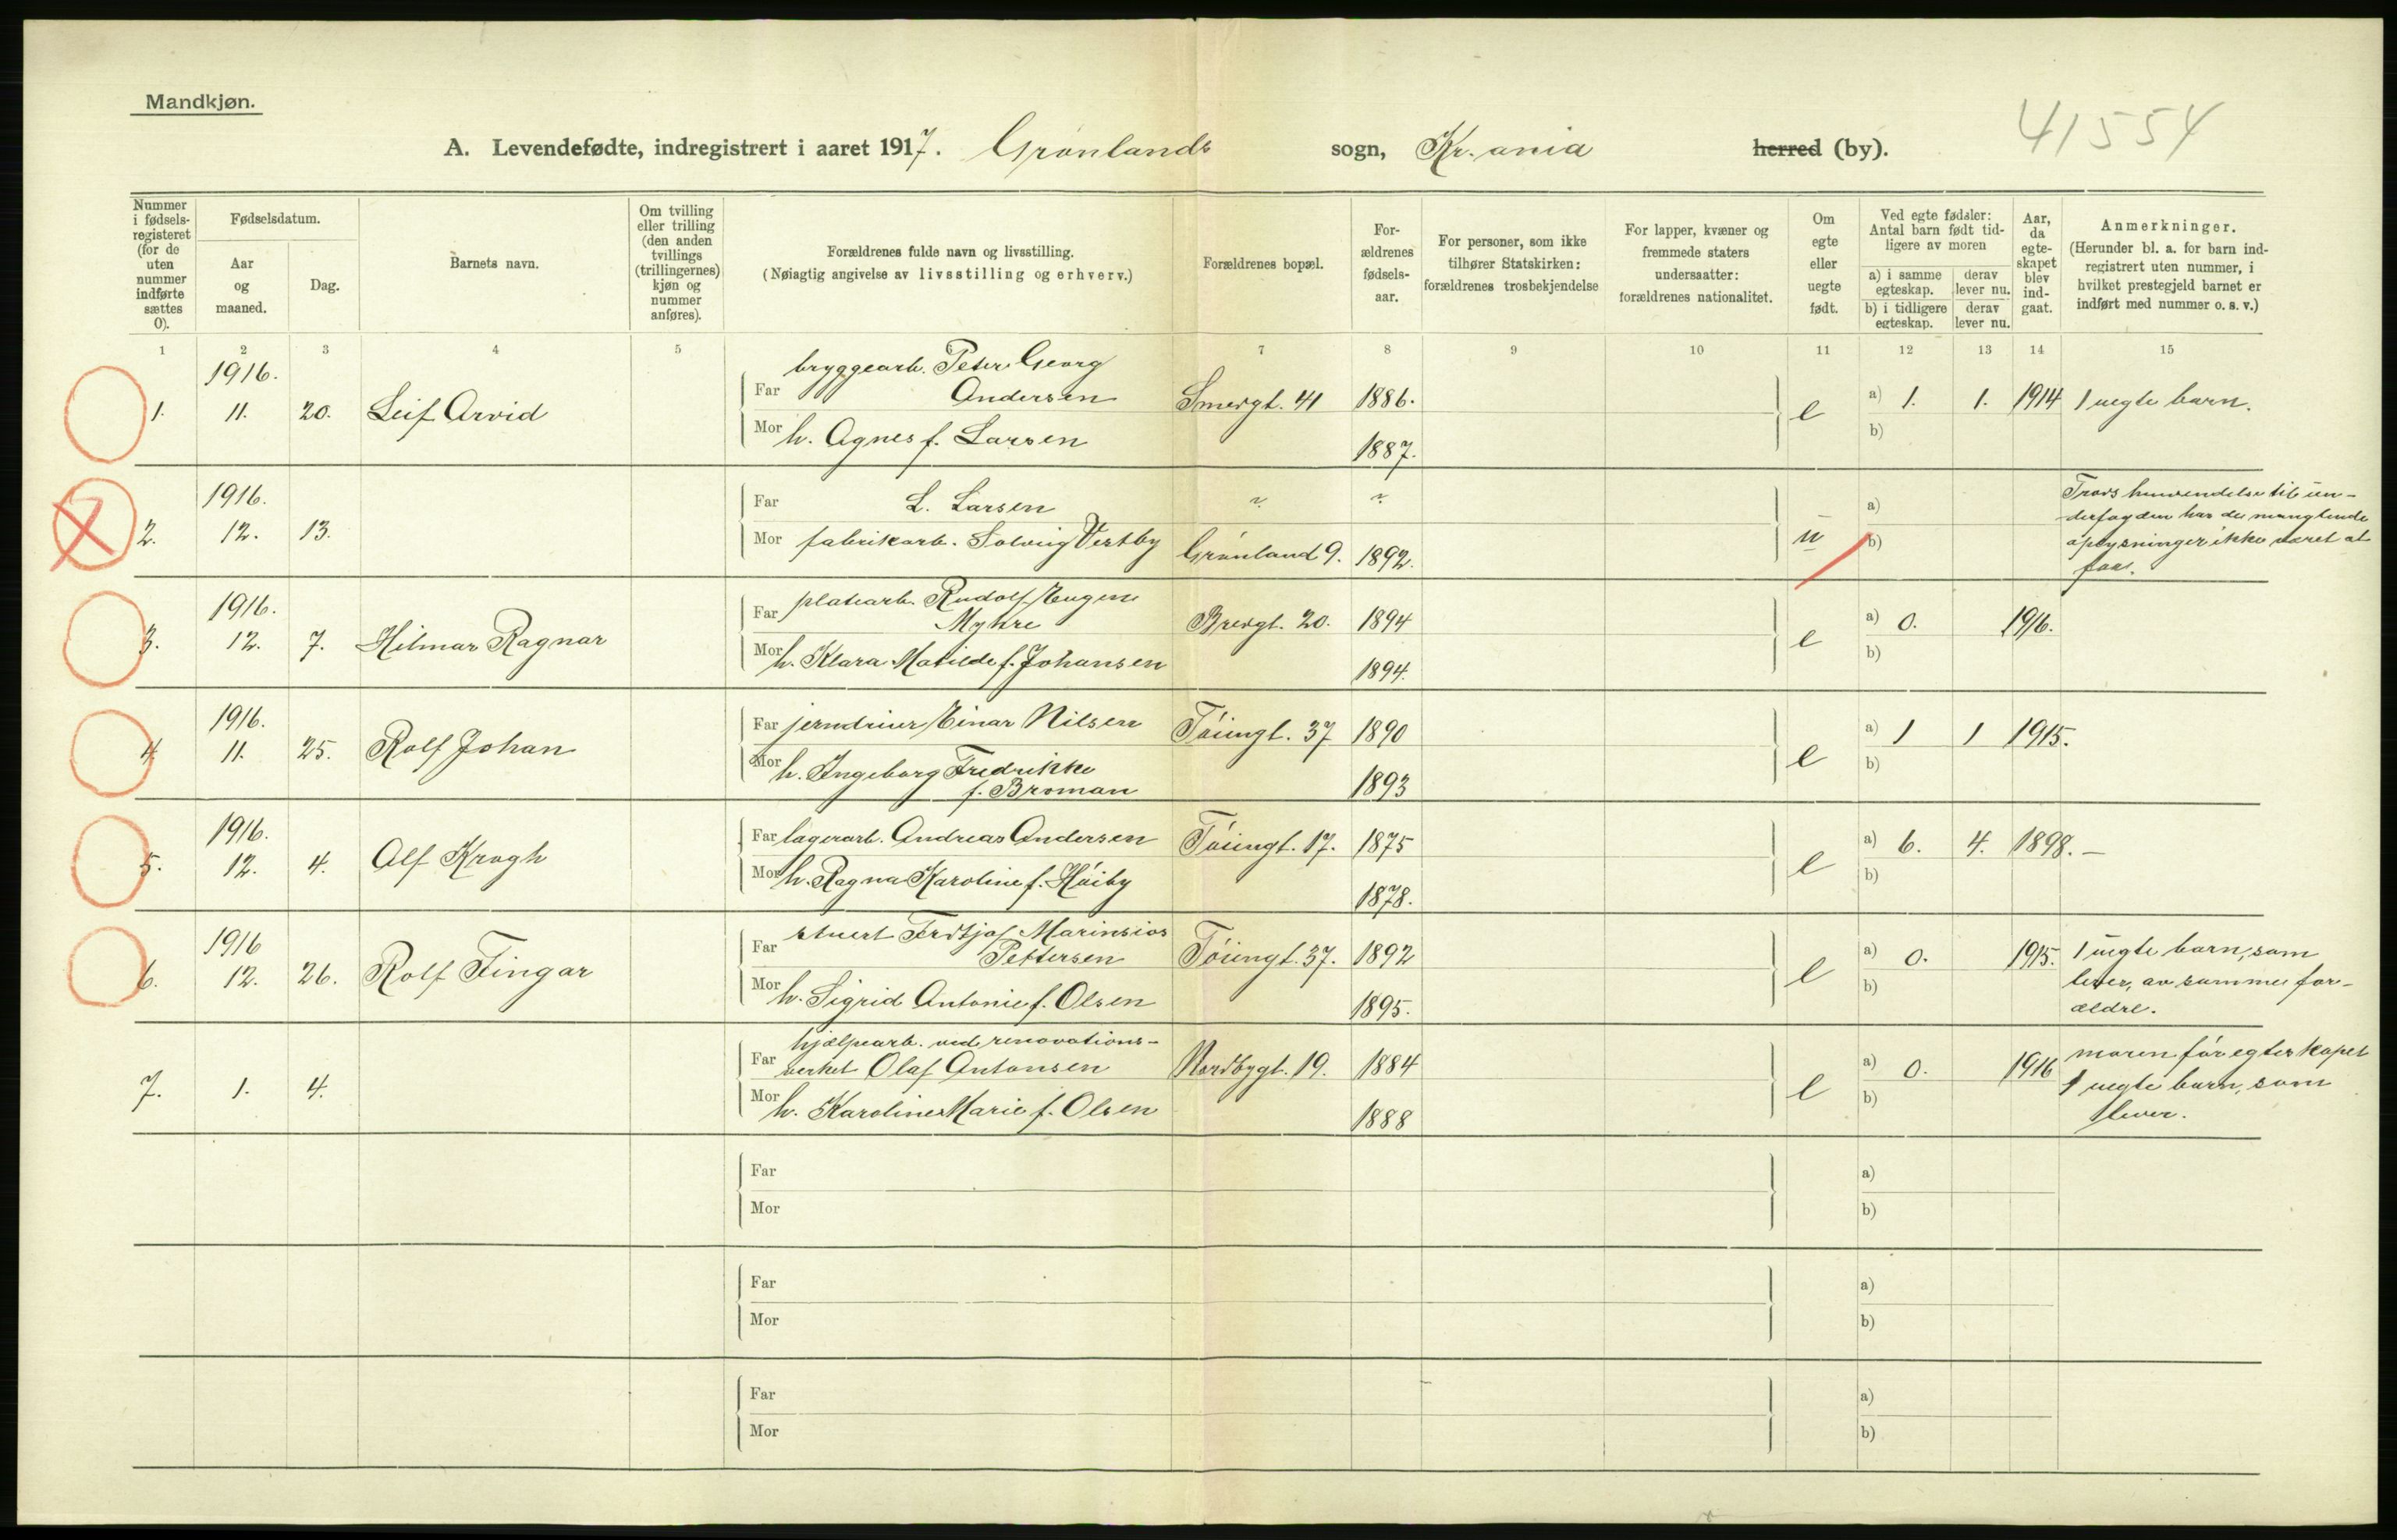 Mandkjøn.
41554
A. Levendefødte, indregistrert i aaret 1917. Grønlands sogn, Kr.ania herred (by).
Nummer i fødselsregisteret (for de uten nummer indførte sættes 0).
Fødselsdatum.
Aar og maaned.
Dag.
Barnets navn.
Om tvilling eller trilling (den anden tvillings (trillingernes) kjøn og nummer anføres).
Forældrenes fulde navn og livsstilling.
(Nøiagtig angivelse av livsstilling og erhverv.)
Forældrenes bopæl.
Forældrenes fødselsaar.
For personer, som ikke tilhører Statskirken: forældrenes trosbekjendelse
For lapper, kvæner og fremmede staters undersaatter: forældrenes nationalitet.
Om egte eller uegte født.
Ved egte fødsler: Antal barn født tidligere av moren
a) i samme egteskap.
derav lever nu.
b) i tidligere egteskap.
derav lever nu.
Aar, da egteskapet blev indgaat.
Anmerkninger.
(Herunder bl. a. for barn indregistrert uten nummer, i hvilket prestegjeld barnet er indført med nummer o. s. v.)
1 2 3 4 5 6 7 8 9 10 11 12 13 14 15
1916.
1. 11. 20. Leif Arvid
bryggearb. Peter Georg
Far Andersen Smedgt. 41 1886.
Mor h. Agnes f. Larsen 1887.
e a) 1. 1. 1914 1 uegte barn.
b)
1916.
2. 12. 13.
Far L. Larsen ? ?
Mor fabrikarb. Solveig Vestby Grønland 9. 1892.
u a)
b)
Trods henvendelse til un-
derfogden har de manglende
oplysninger ikke været at
faa.
1916.
3. 12. 7. Hilmar Ragnar
Far platearb. Rudolf Eugen
Myhre Bredgt. 20. 1894
Mor h. Klara Matilde f. Johansen 1894.
e a) 0. 1916.
b)
1916.
4. 11. 25. Rolf Johan
Far jerndreier Einar Nilsen Tøiengt. 37 1890
Mor h. Ingeborg Fredrikke
f. Broman 1893
e a) 1 1 1915.
b)
1916.
5. 12. 4. Alf Krogh
Far lagerarb. Andreas Andersen Tøiengt. 17. 1875
Mor h. Ragna Karoline f. Høiby 1878.
e a) 6. 4. 1898. —
b)
1916
6. 12. 26. Rolf Fingar
Far stuert Fridtjof Marinsius
Pettersen Tøiengt. 37. 1892
Mor h. Sigrid Antonie f. Olsen 1895.
e a) 0. 1915.
b)
1 uegte barn, som
lever, av samme for-
ældre.
7. 1. 4.
hjælpearb. ved renovations-
Far verket Olaf Antonsen Nordbygt. 19. 1884
Mor h. Karoline Marie f. Olsen 1888
e a) 0. 1916
b)
moren før egteskapet
1 uegte barn, som
lever.
Far a)
Mor b)
Far a)
Mor b)
Far a)
Mor b)